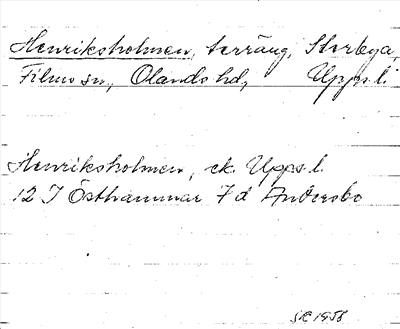 Henriksholmen, terräng, Storbya,
Films sn, Olands hd, Upps. l.
Henriksholmen, ek. Upps. l.
12 I Östhammar 7 d Andersbo
SR 1958